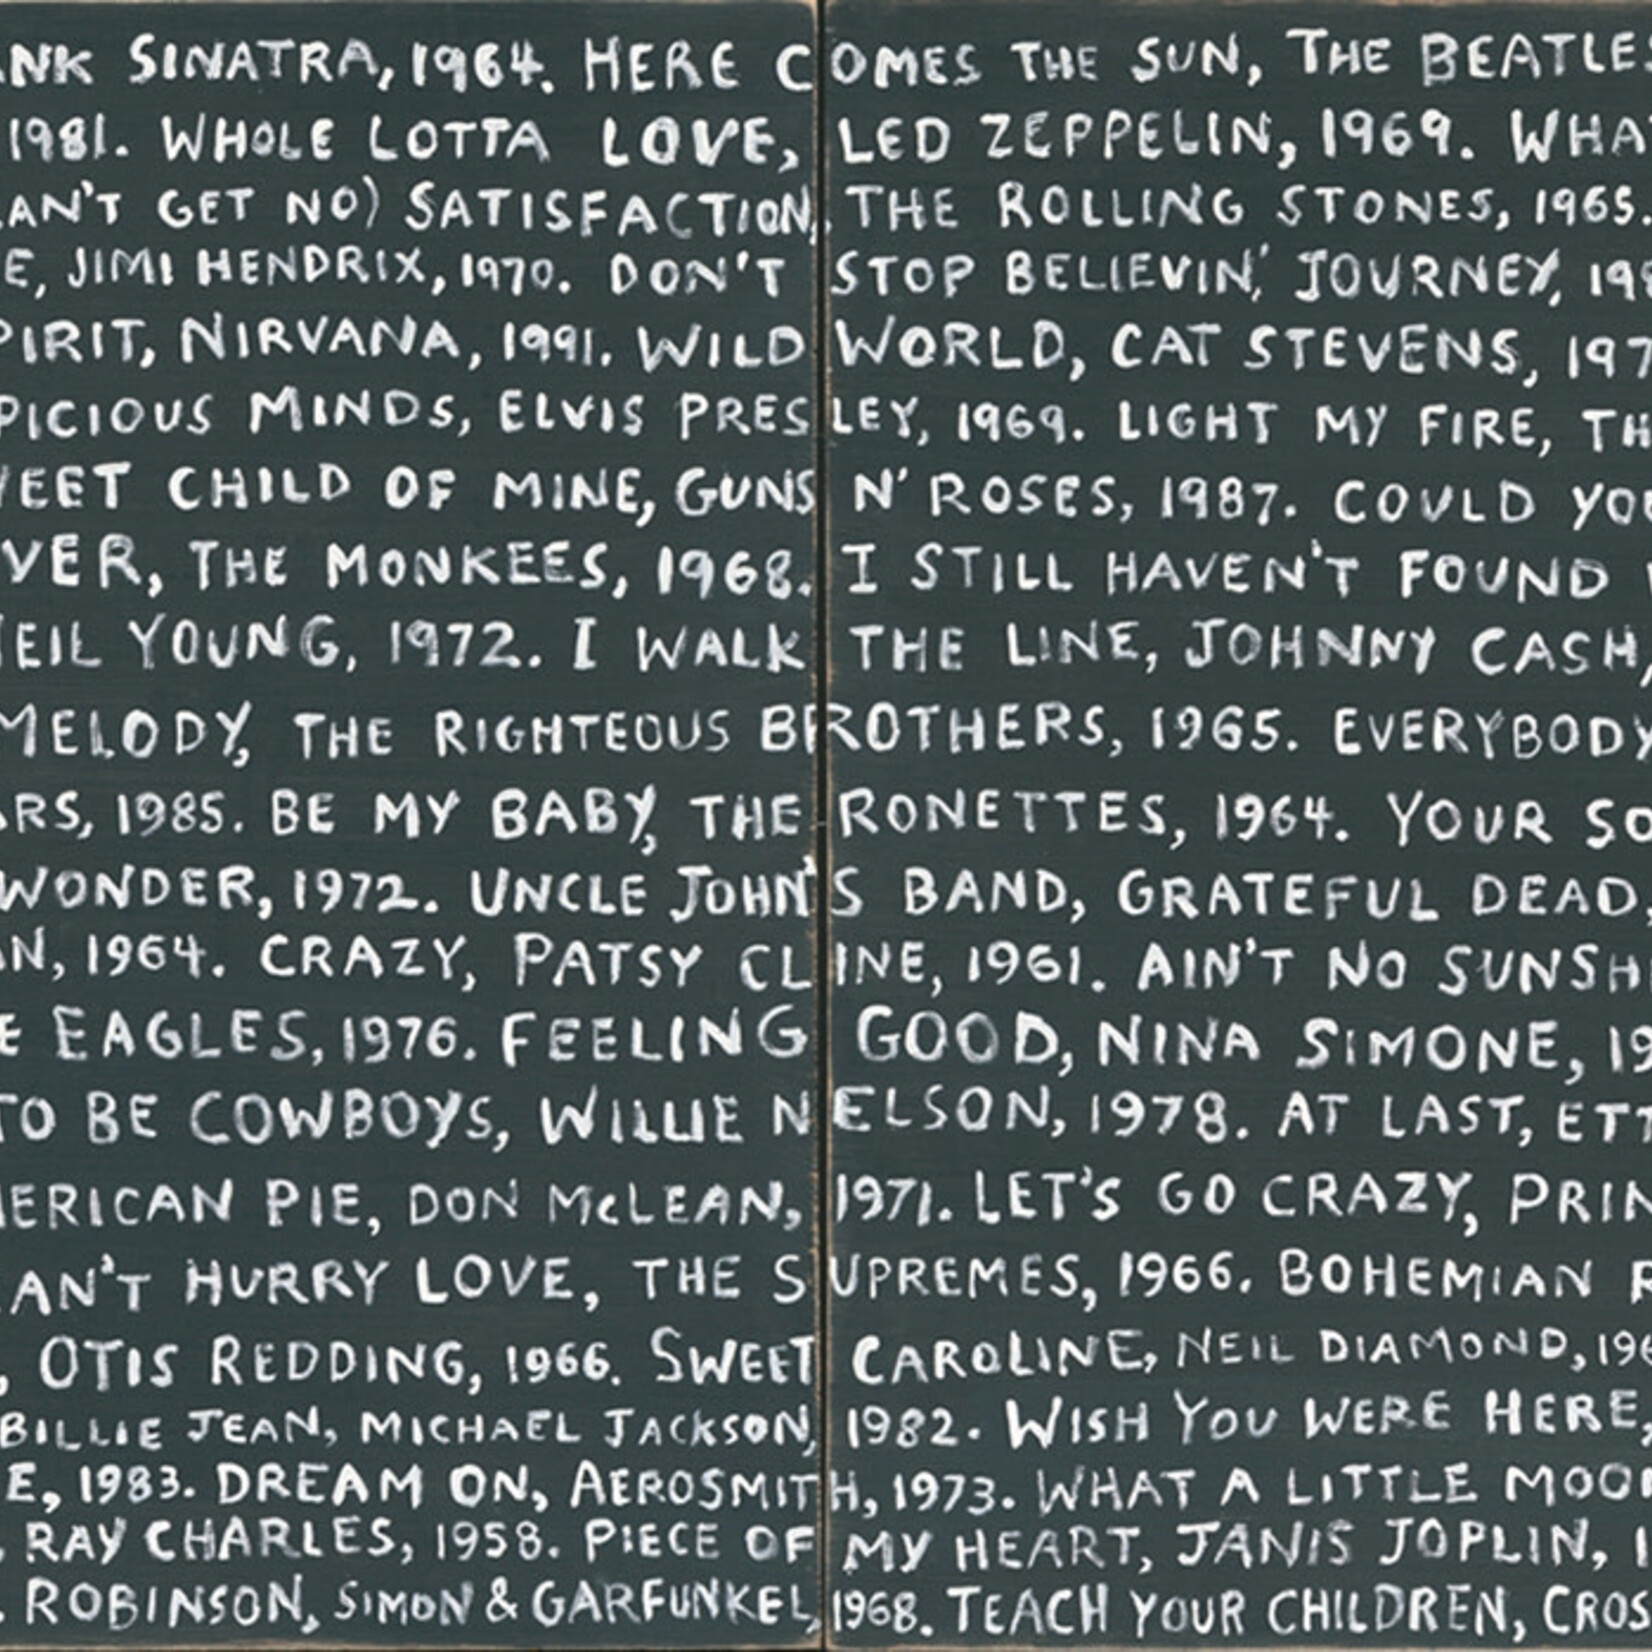 ANK SINATRA, 1964. HERE COMES THE SUN, THE BEATLES
1981. WHOLE LOTTA LOVE, LED ZEPPELIN, 1969. WHA
CAN'T GET NO) SATISFACTION, THE ROLLING STONES, 1965.
E, JIMI HENDRIX, 1970. DON'T STOP BELIEVIN', JOURNEY, 198
PIRIT, NIRVANA, 1991. WILD WORLD, CAT STEVENS, 197
PICIOUS MINDS, ELVIS PRESLEY, 1969. LIGHT MY FIRE, TH
WEET CHILD OF MINE, GUNS N' ROSES, 1987. COULD YOU
VER, THE MONKEES, 1968. I STILL HAVEN'T FOUND
NEIL YOUNG, 1972. I WALK THE LINE, JOHNNY CASH,
MELODY, THE RIGHTEOUS BROTHERS, 1965. EVERYBODY
ARS, 1985. BE MY BABY, THE RONETTES, 1964. YOUR SO
WONDER, 1972. UNCLE JOHN'S BAND, GRATEFUL DEAD,
AN, 1964. CRAZY, PATSY CLINE, 1961. AIN'T NO SUNSHI
E EAGLES, 1976. FEELING GOOD, NINA SIMONE, 19
TO BE COWBOYS, WILLIE NELSON, 1978. AT LAST, ETT
MERICAN PIE, DON McLEAN, 1971. LET'S GO CRAZY, PRIN
CAN'T HURRY LOVE, THE SUPREMES, 1966. BOHEMIAN R
, OTIS REDDING, 1966. SWEET CAROLINE, NEIL DIAMOND, 196
BILLIE JEAN, MICHAEL JACKSON, 1982. WISH YOU WERE HERE,
E, 1983. DREAM ON, AEROSMITH, 1973. WHAT A LITTLE MOON
. RAY CHARLES, 1958. PIECE OF MY HEART, JANIS JOPLIN, 1
. ROBINSON, SIMON & GARFUNKEL, 1968. TEACH YOUR CHILDREN, CROS